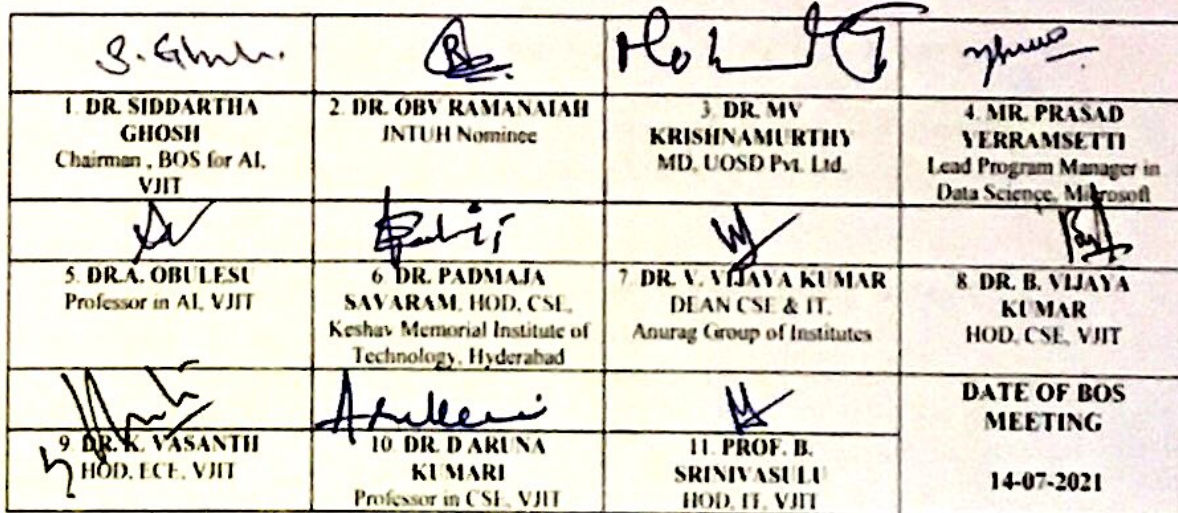 S. Ghosh.
1. DR. SIDDARTHA
GHOSH
Chairman , BOS for AI,
VJIT
2. DR. OBV RAMANAIAH
JNTUH Nominee
3. DR. MV
KRISHNAMURTHY
MD, UOSD Pvt. Ltd.
4. MR. PRASAD
YERRAMSETTI
Lead Program Manager in
Data Science, Microsoft
5. DR.A. OBULESU
Professor in AI, VJIT
6. DR. PADMAJA
SAVARAM, HOD, CSE,
Keshav Memorial Institute of
Technology, Hyderabad
7. DR. V. VIJAYA KUMAR
DEAN CSE & IT,
Anurag Group of Institutes
8. DR. B. VIJAYA
KUMAR
HOD, CSE, VJIT
9. DR. K. VASANTH
HOD, ECE, VJIT
10. DR. D ARUNA
KUMARI
Professor in CSE, VJIT
11. PROF. B.
SRINIVASULU
HOD, IT, VJIT
DATE OF BOS
MEETING
14-07-2021